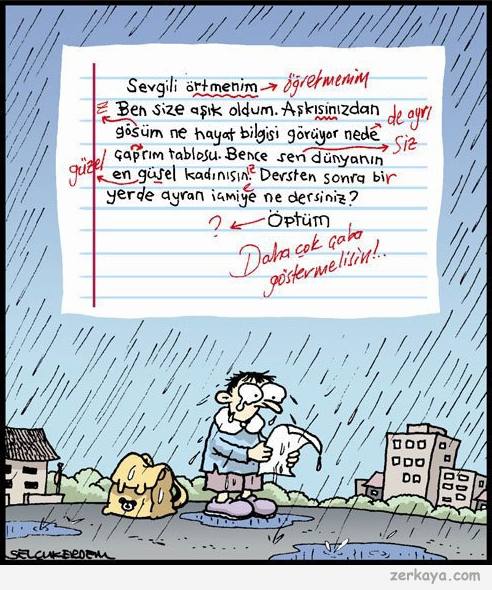 Sevgili örtmenim → öğretmenim
Ben size aşık oldum. Aşkısinızdan de ayrı
gösüm ne hayat bilgisi görüyor nede siz
güzel çaprım tablosu. Bence sen dünyanın
en güsel kadınısın. Dersten sonra bir
yerde ayran içmiye ne dersiniz?
? ← Öptüm
Daha çok çaba
göstermelisin!..
SELÇUK ERDEM
zerkaya.com